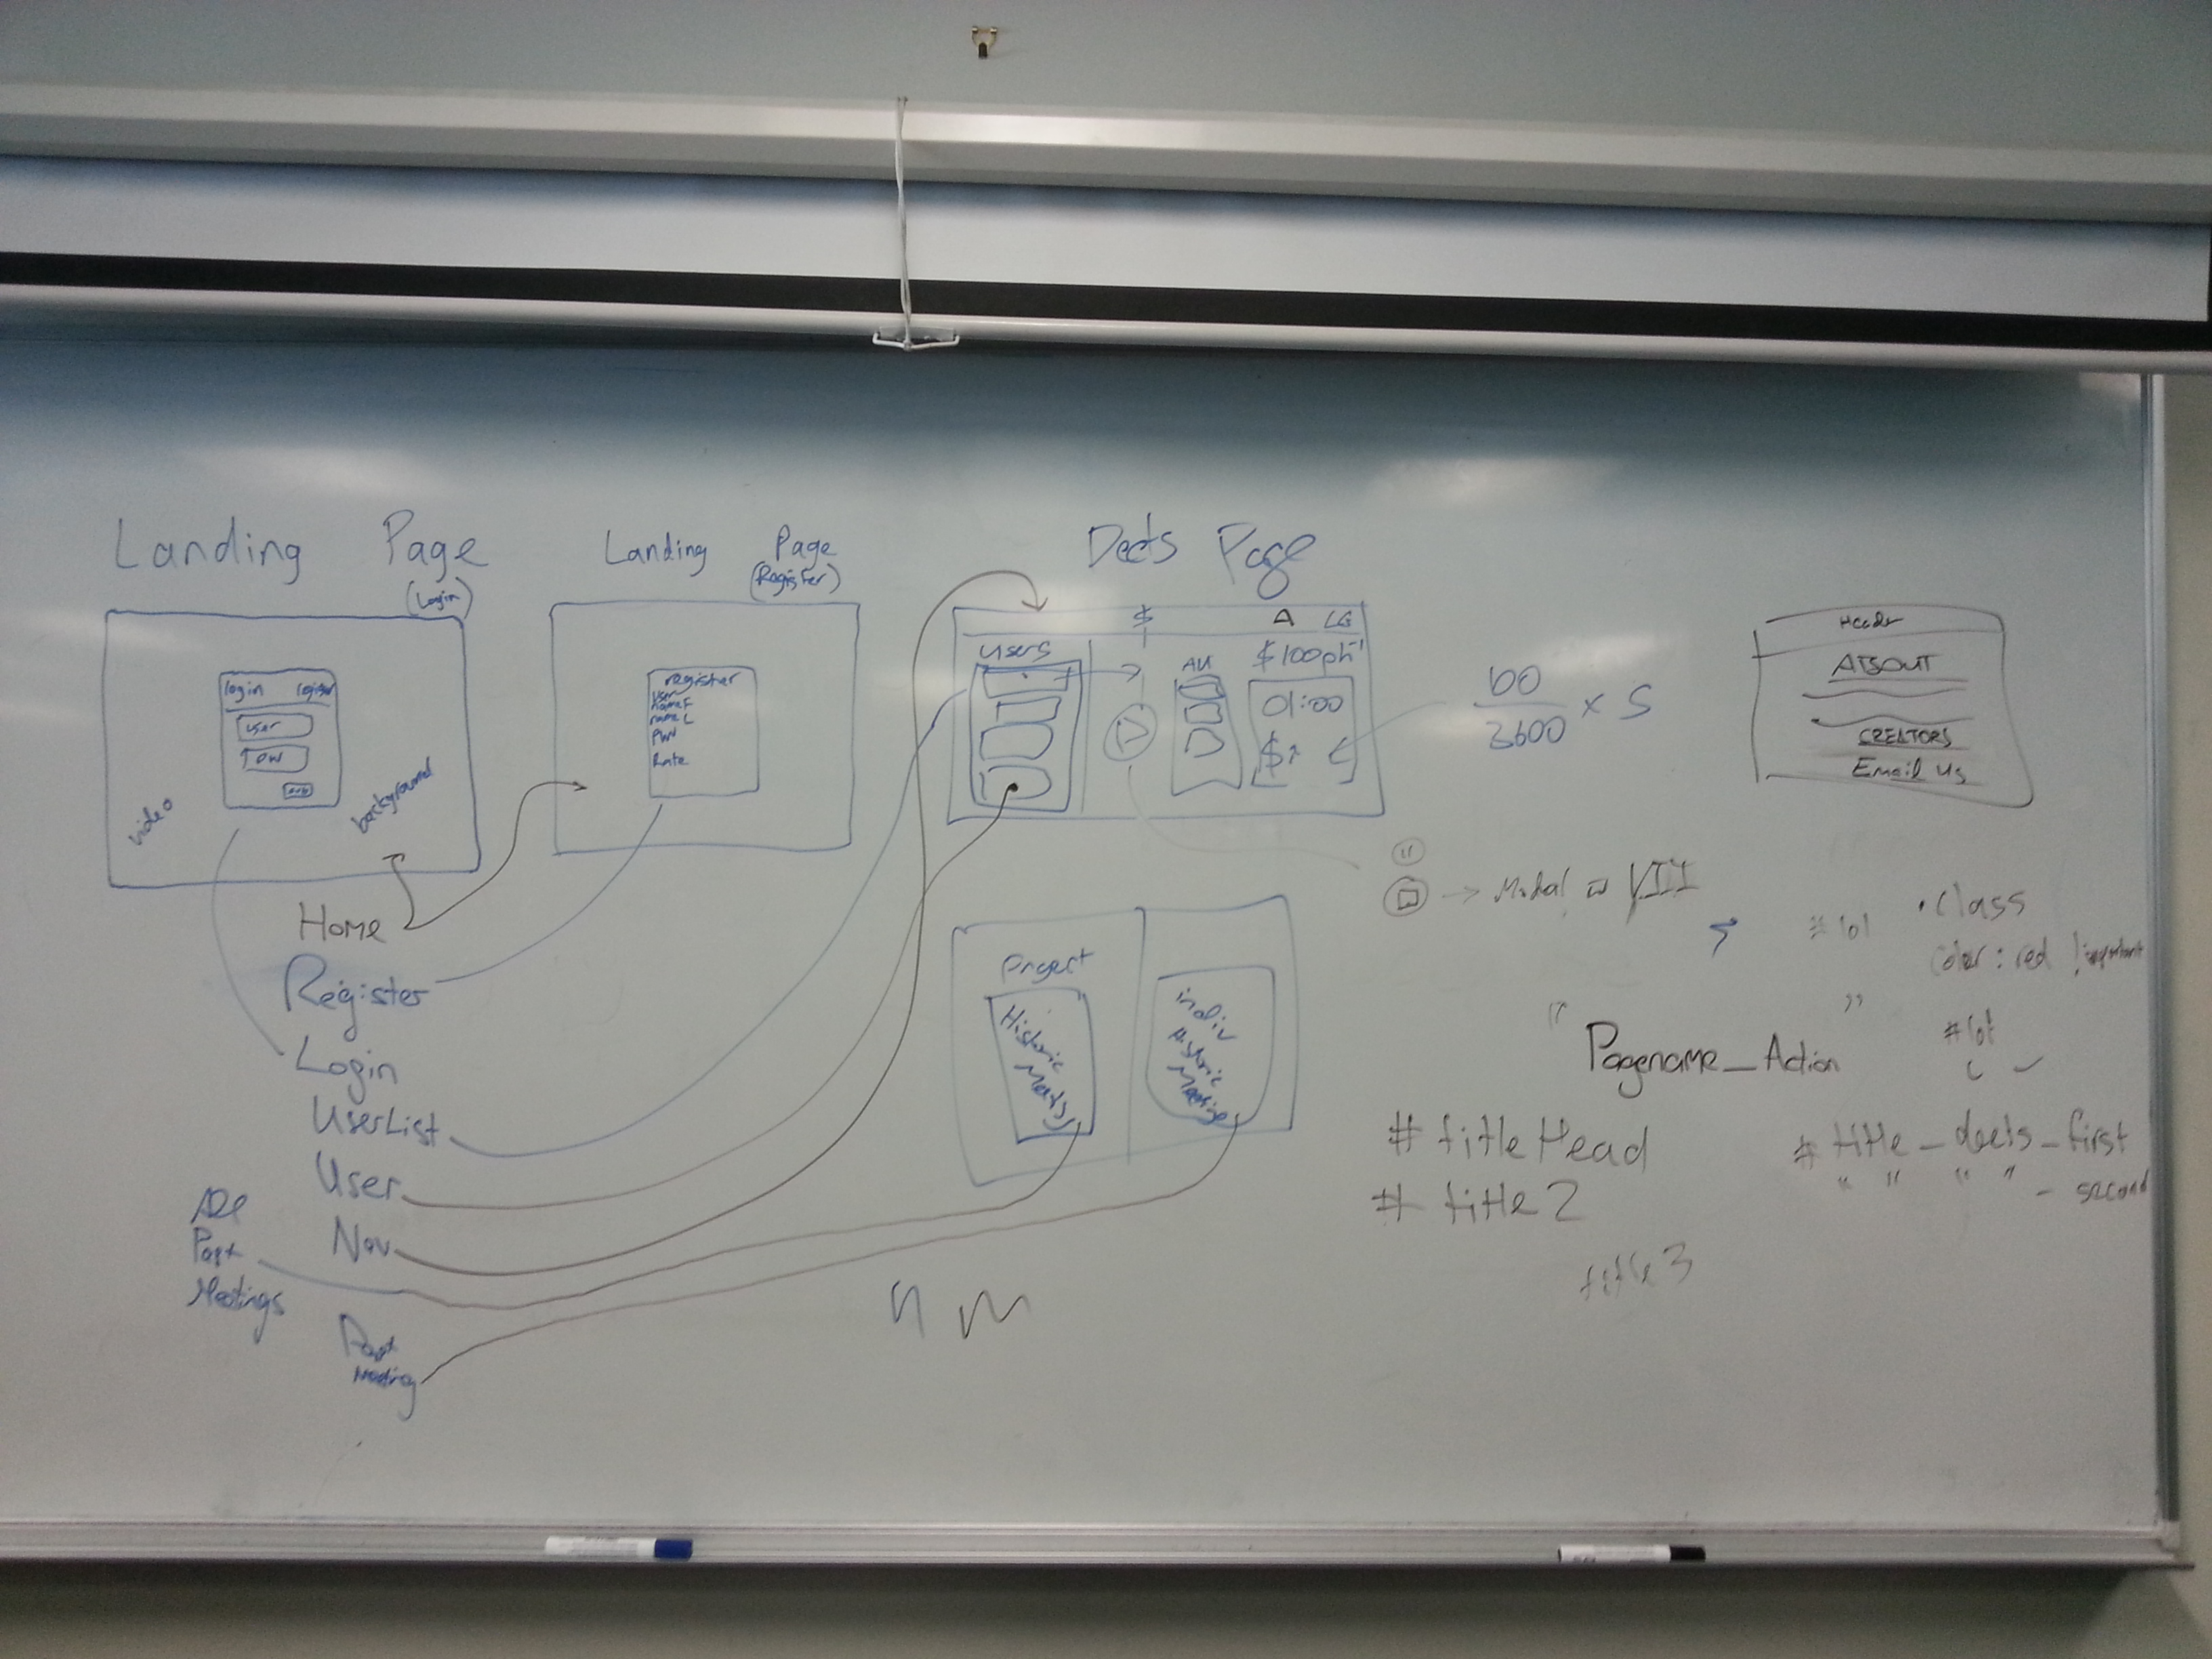 Landing Page
(Login)
login register
user
PW
video
background
Landing Page
(Register)
register
User
name F
name L
PW
Rate
Deets Page
$ A LG
Users
All
$100ph
01:00
$
60
3600 × S
Header
ABOUT
CREATORS
Email Us
Home
Register
Login
UserList
User
Nav
All
Past
Meetings
Past
Meeting
Project
Historic
Meets
indiv
Historic
Meeting
Modal
#lol
.class
color: red !important
" "
Pagename_Action
#lol
# titleHead
# title2
title3
# title_deets_first
" " " " - second